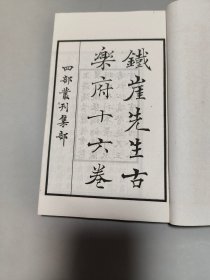 鐵崖先生古
樂府十六卷
四部叢刊集部